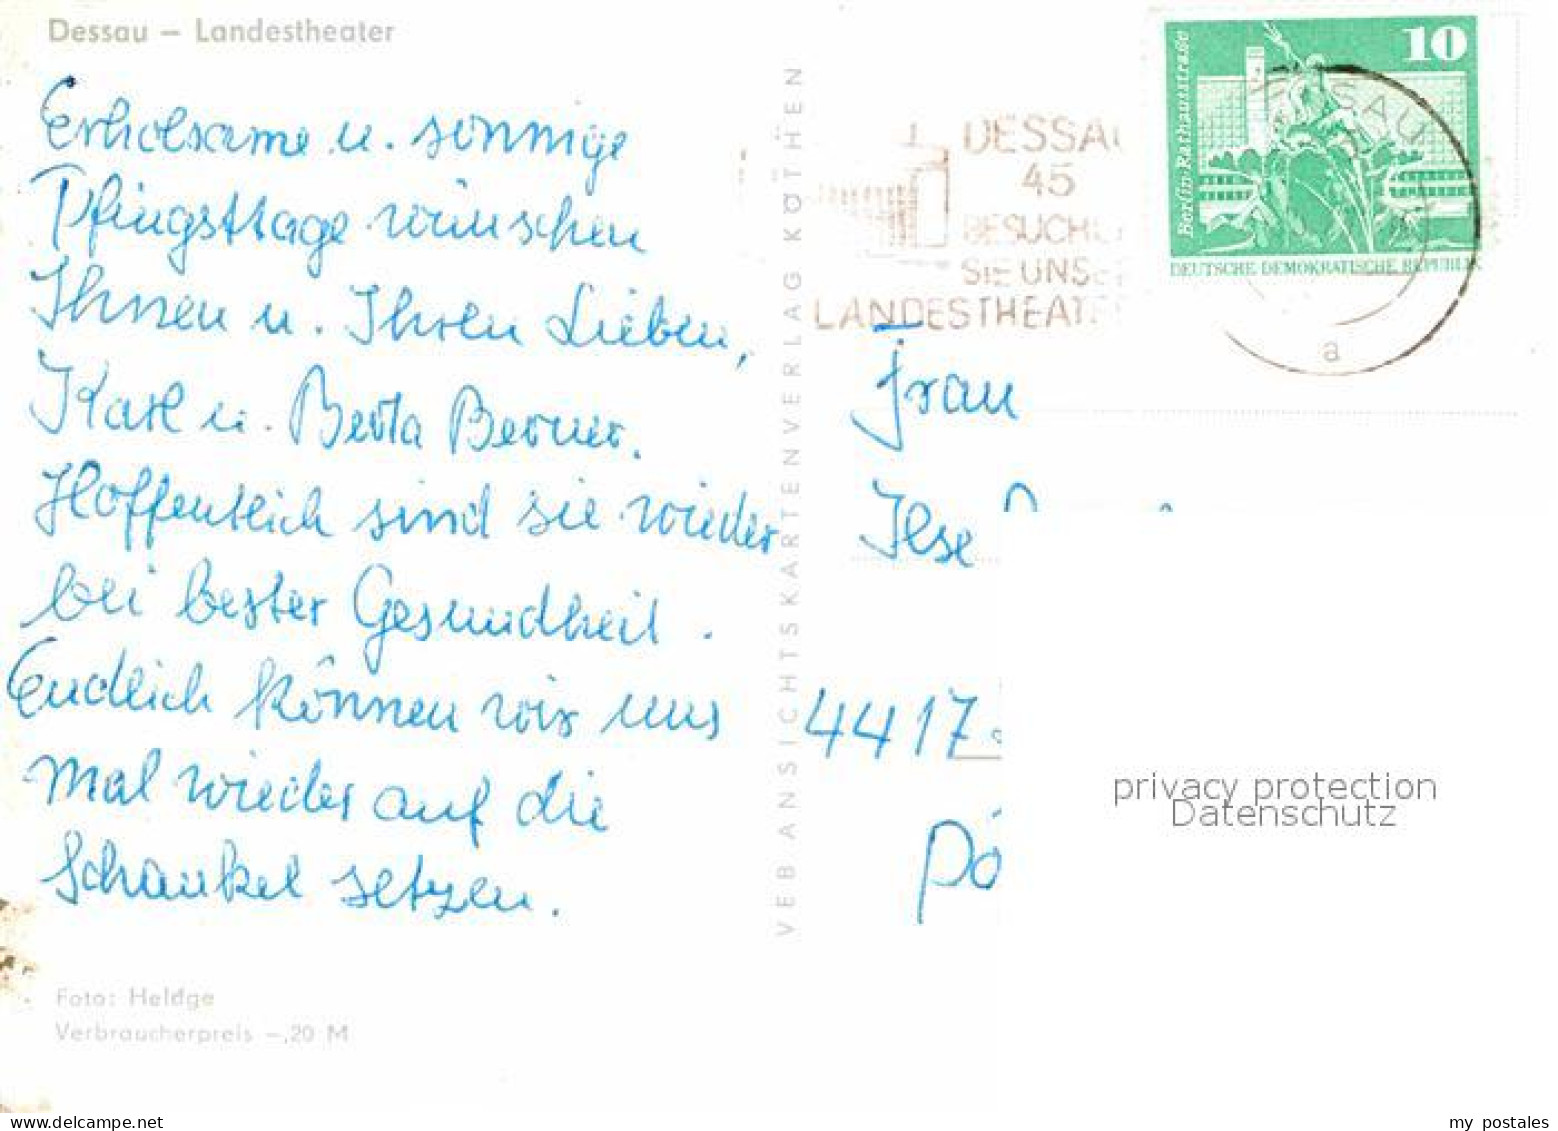 Dessau – Landestheater
Erholsame u. sonnige
Pfingsttage wünschen
Ihnen u. Ihren Lieben,
Karl u. Berta Berner.
Hoffentlich sind sie wieder
bei bester Gesundheit.
Endlich können wir uns
mal wieder auf die
Schaukel setzen.
Foto: Heldge
Verbraucherpreis –,20 M
VEB ANSICHTSKARTENVERLAG KÖTHEN
DESSAU
45
BESUCHEN
SIE UNSER
LANDESTHEATER
10
Berlin-Rathausstraße
DEUTSCHE DEMOKRATISCHE REPUBLIK
a
Frau
Ilse
4417
privacy protection
Datenschutz
my postales